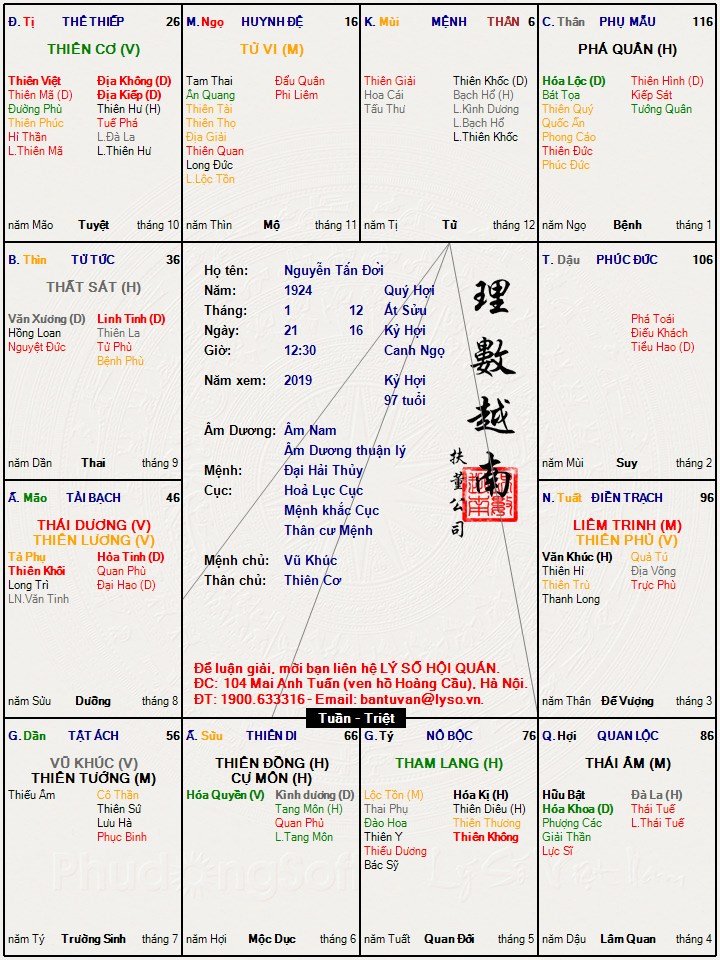 Đ. Tị THÊ THIẾP 26
THIÊN CƠ (V)
Thiên Việt Địa Không (D)
Thiên Mã (D) Địa Kiếp (D)
Đường Phù Thiên Hư (H)
Thiên Phúc Tuế Phá
Hỉ Thần L.Đà La
L.Thiên Mã L.Thiên Hư
năm Mão Tuyệt tháng 10
M. Ngọ HUYNH ĐỆ 16
TỬ VI (M)
Tam Thai Đẩu Quân
Ân Quang Phi Liêm
Thiên Tài
Thiên Thọ
Địa Giải
Thiên Quan
Long Đức
L.Lộc Tồn
năm Thìn Mộ tháng 11
K. Mùi MỆNH THÂN 6
Thiên Giải Thiên Khốc (D)
Hoa Cái Bạch Hổ (H)
Tấu Thư L.Kình Dương
L.Bạch Hổ
L.Thiên Khốc
năm Tị Tử tháng 12
C. Thân PHỤ MẪU 116
PHÁ QUÂN (H)
Hóa Lộc (D) Thiên Hình (D)
Bát Tọa Kiếp Sát
Thiên Quý Tướng Quân
Quốc Ấn
Phong Cáo
Thiên Đức
Phúc Đức
năm Ngọ Bệnh tháng 1
B. Thìn TỬ TỨC 36
THẤT SÁT (H)
Văn Xương (D) Linh Tinh (D)
Hồng Loan Thiên La
Nguyệt Đức Tử Phù
Bệnh Phù
năm Dần Thai tháng 9
Họ tên: Nguyễn Tấn Đời
Năm: 1924 Quý Hợi
Tháng: 1 12 Ất Sửu
Ngày: 21 16 Kỷ Hợi
Giờ: 12:30 Canh Ngọ
Năm xem: 2019 Kỷ Hợi
97 tuổi
Âm Dương: Âm Nam
Âm Dương thuận lý
Mệnh: Đại Hải Thủy
Cục: Hoả Lục Cục
Mệnh khắc Cục
Thân cư Mệnh
Mệnh chủ: Vũ Khúc
Thân chủ: Thiên Cơ
理數越南
扶董公司
Để luận giải, mời bạn liên hệ LÝ SỐ HỘI QUÁN.
ĐC: 104 Mai Anh Tuấn (ven hồ Hoàng Cầu), Hà Nội.
ĐT: 1900.633316 - Email: bantuvan@lyso.vn.
T. Dậu PHÚC ĐỨC 106
Phá Toái
Điếu Khách
Tiểu Hao (D)
năm Mùi Suy tháng 2
Ấ. Mão TÀI BẠCH 46
THÁI DƯƠNG (V)
THIÊN LƯƠNG (V)
Tả Phụ Hỏa Tinh (D)
Thiên Khôi Quan Phù
Long Trì Đại Hao (D)
LN.Văn Tinh
năm Sửu Dưỡng tháng 8
N. Tuất ĐIỀN TRẠCH 96
LIÊM TRINH (M)
THIÊN PHỦ (V)
Văn Khúc (H) Quả Tú
Thiên Hỉ Địa Võng
Thiên Trù Trực Phù
Thanh Long
năm Thân Đế Vượng tháng 3
Tuần - Triệt
G. Dần TẬT ÁCH 56
VŨ KHÚC (V)
THIÊN TƯỚNG (M)
Thiếu Âm Cô Thần
Thiên Sứ
Lưu Hà
Phục Binh
năm Tý Trường Sinh tháng 7
Ấ. Sửu THIÊN DI 66
THIÊN ĐỒNG (H)
CỰ MÔN (H)
Hóa Quyền (V) Kình dương (D)
Tang Môn (H)
Quan Phủ
L.Tang Môn
năm Hợi Mộc Dục tháng 6
G. Tý NÔ BỘC 76
THAM LANG (H)
Lộc Tồn (M) Hóa Kị (H)
Thai Phụ Thiên Diêu (H)
Đào Hoa Thiên Thương
Thiên Y Thiên Không
Thiếu Dương
Bác Sỹ
năm Tuất Quan Đới tháng 5
Q. Hợi QUAN LỘC 86
THÁI ÂM (M)
Hữu Bật Đà La (H)
Hóa Khoa (D) Thái Tuế
Phượng Các L.Thái Tuế
Giải Thần
Lực Sĩ
năm Dậu Lâm Quan tháng 4
Phudongsoft Lý Số Việt Nam